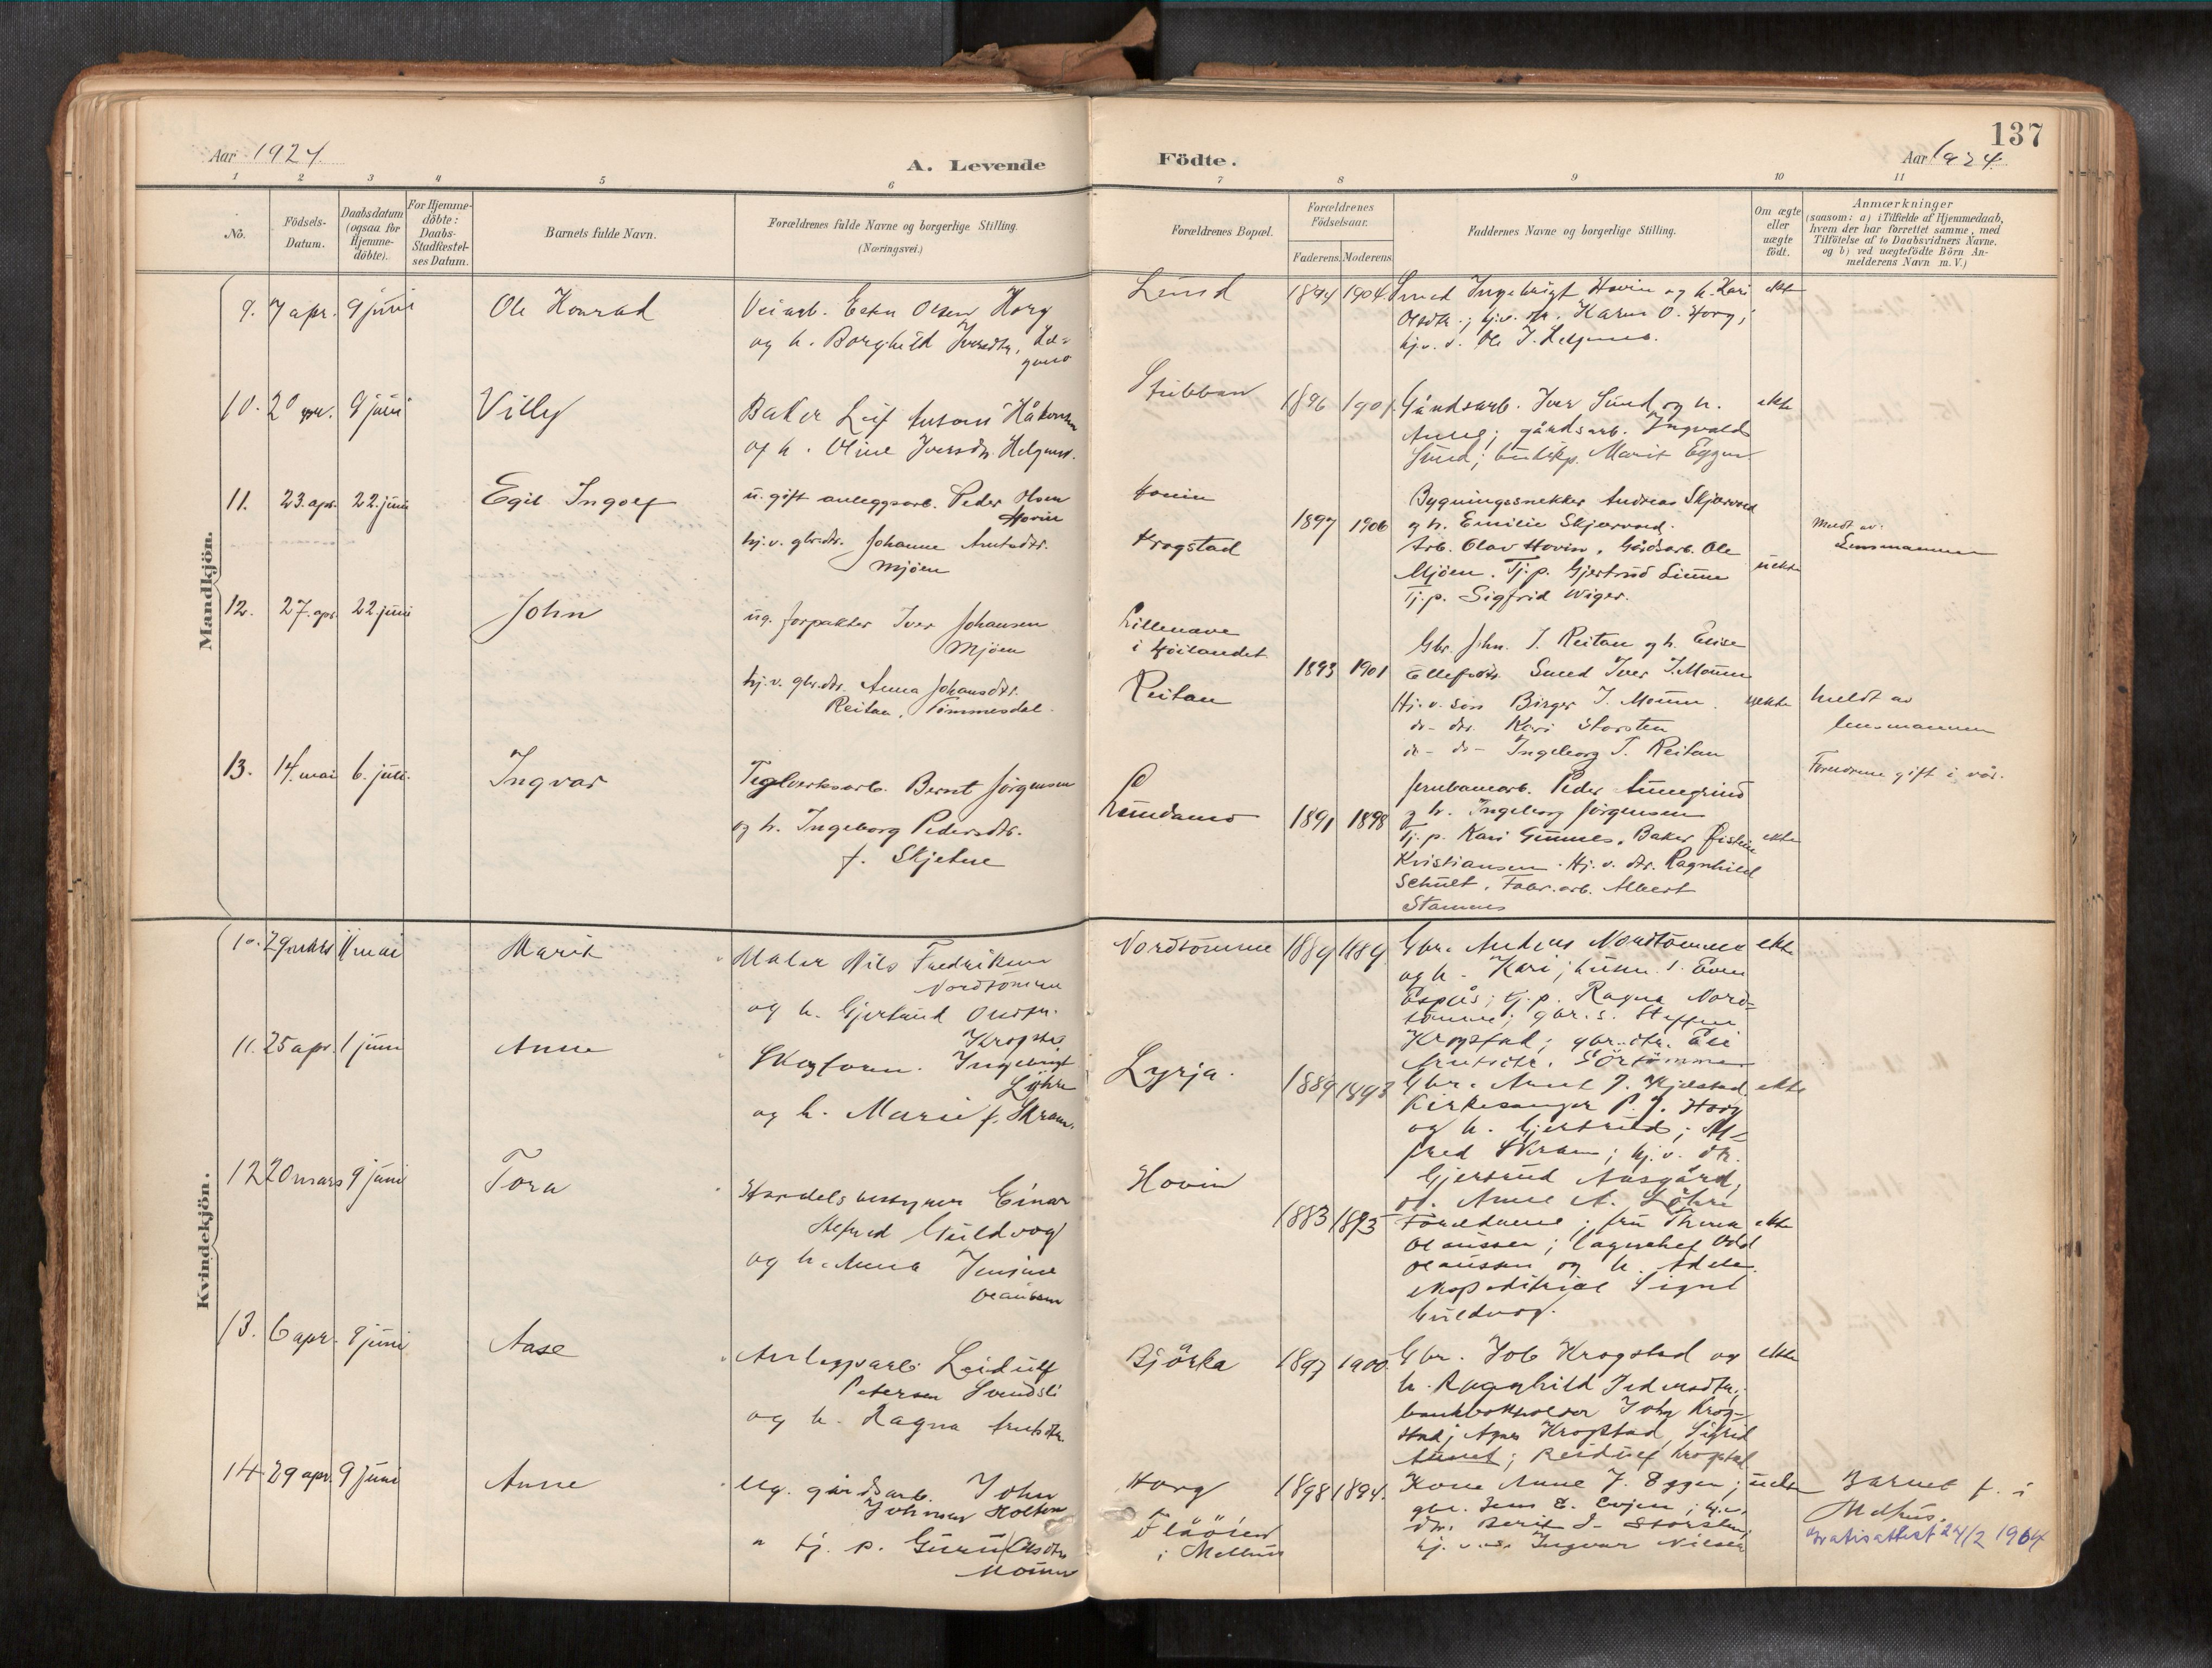 137
Aar 1924.
A. Levende
Födte.
Aar 1924.
1 2 3 4 5 6 7 8 9 10 11
No.
Födsels-
Datum.
Daabsdatum
(ogsaa for
Hjemme-
döbte).
For Hjemme-
döbte:
Daabs-
Stadfæstel-
ses Datum.
Barnets fulde Navn.
Forældrenes fulde Navne og borgerlige Stilling.
(Næringsvei.)
Forældrenes Bopæl.
Forældrenes
Födselsaar.
Faderens. Moderens.
Faddernes Navne og borgerlige Stilling.
Om ægte
eller
uægte
födt.
Anmærkninger
(saasom: a) i Tilfælde af Hjemmedaab,
hvem der har forrettet samme, med
Tilföielse af to Daabsvidners Navne,
og b) ved uægtefödte Börn An-
melderens Navn m. V.)
Mandkjön.
9. 7 apr. 9 juni
Ole Konrad
Veiarb. Olsen Horg
og h. Borghild Iversdtr.
Lund
1894 1904
Smed Ingebrigt Hovin og h. Kari
Olsdtr.; hj.v. Karen O. Horg;
hj.v. s. Ole J.
ekte
10. 20 apr. 9 juni
Villy
Baker Leif Antons Håkonsen
og h. Oline Iversdtr.
Stubban
1896 1901.
Gårdsarb. Iver Sund og h.
Anne; gårdsarb. Ingvald
Sund; Marit Eggen
ekte
11. 23. apr. 22. juni
Egil Ingolf
u. gift anleggsarb. Peder Olsen
Hovin
hj.v. gbr.dtr. Johanne Arntsdtr.
Mjöen
Hovin
Krogstad
1897 1906
Bygningssnekker Andreas Skjærvold
og h. Emilie Skjærvold.
Arb. Olav Hovin. Gårdsarb. Ole
Mjöen. Tj.p. Gjertrud
Tj.p. Sigfrid Wiger.
uekte
Meldt av:
Lensmannen
12. 27. apr. 22. juni
John
ug. forpakter Iver Johansen
Mjöen
hj.v. gbr.dtr. Anna Johansdtr.
Reitan,
i Höilandet.
Reitan
1893 1901
Gbr. John J. Reitan og h. Elise
Ellefsdtr. Smed Iver J. Moum
Hj.v. sön Birger J. Moum.
do- dtr. Kari Storsten
do- do- Ingeborg T. Reitan
uekte
Meldt av
lensmannen
13. 14. mai 6. juli.
Ingvar
Teglverksarb. Bernt Jörgensen
og h. Ingeborg Pedersdtr.
f. Skjetne
Lundamo
1891 1898
Jernbanearb. Peder
og h. Ingeborg Jörgensen
Tj.p. Kari Gimnes. Baker
Kristiansen. Hj.v. dtr. Ragnhild
Schult. Fabr.arb. Albert
Stamnes
ekte
Foreldrene gift i vår.
Kvindekjön.
10. 29 mars 11 mai
Marit
Maler Nils Fredriksen
Nordtömme
og h. Gjertrud
Krogstad
Nordtömme
1889 1889
Gbr. Anders Nordtömme
og h. Kari; Even
Espås; tj.p. Ragna Nord-
tömme; gbr.s. Steffen
Krogstad; gbr.dtr. Eli
Arntsdtr. Sörtömme
ekte
11. 25 apr. 1 juni
Anne
Skogforv. Ingebrigt
Löhre
og h. Marie f. Skram.
Lyrja.
1889 1893
Gbr. Arnt J. Kjelstad
Kirkesanger P. J. Horg
og h. Gjertrud; Al-
fred Skram; hj.v. dtr.
Gjertrud Aasgård;
do. Anne A. Löhre
ekte
12 20 mars 9 juni
Tora
Handelsbestyrer Einar
Alfred Guldvog
og h. Anna Jensine
Olaussen
Hovin
1883 1893
Foreldrene; fru Thora
Olaussen; lagerchef Odd
Olaussen og h. Adele.
ekspeditrice Signe
Guldvog.
ekte
13. 6 apr. 9 juni
Aase
Anleggsarb. Leidulf
Petersen Svendsli
og h. Ragna
Björka
1897 1900.
Gbr. Job Krogstad og
h. Ragnhild Pedersdtr.;
bankbokholder John Krog-
stad; Agnes Krogstad, Sigrid
Krogstad
ekte
14 29 apr. 9 juni
Anne
Ug. gårdsarb. John
Johnsen Holten
" tj. p. Guru Olsdtr.
Horg
Flåöien
i Melhus
1898 1894.
Kone Anne J. Eggen;
gbr. Jens E. Evjen; hj.v.
dtr. Berit J. Storsten;
hj.v.s. Ingvar Nilsen
uekte
Barnet f. i
Melhus.
Gratisattest 24/2 1964